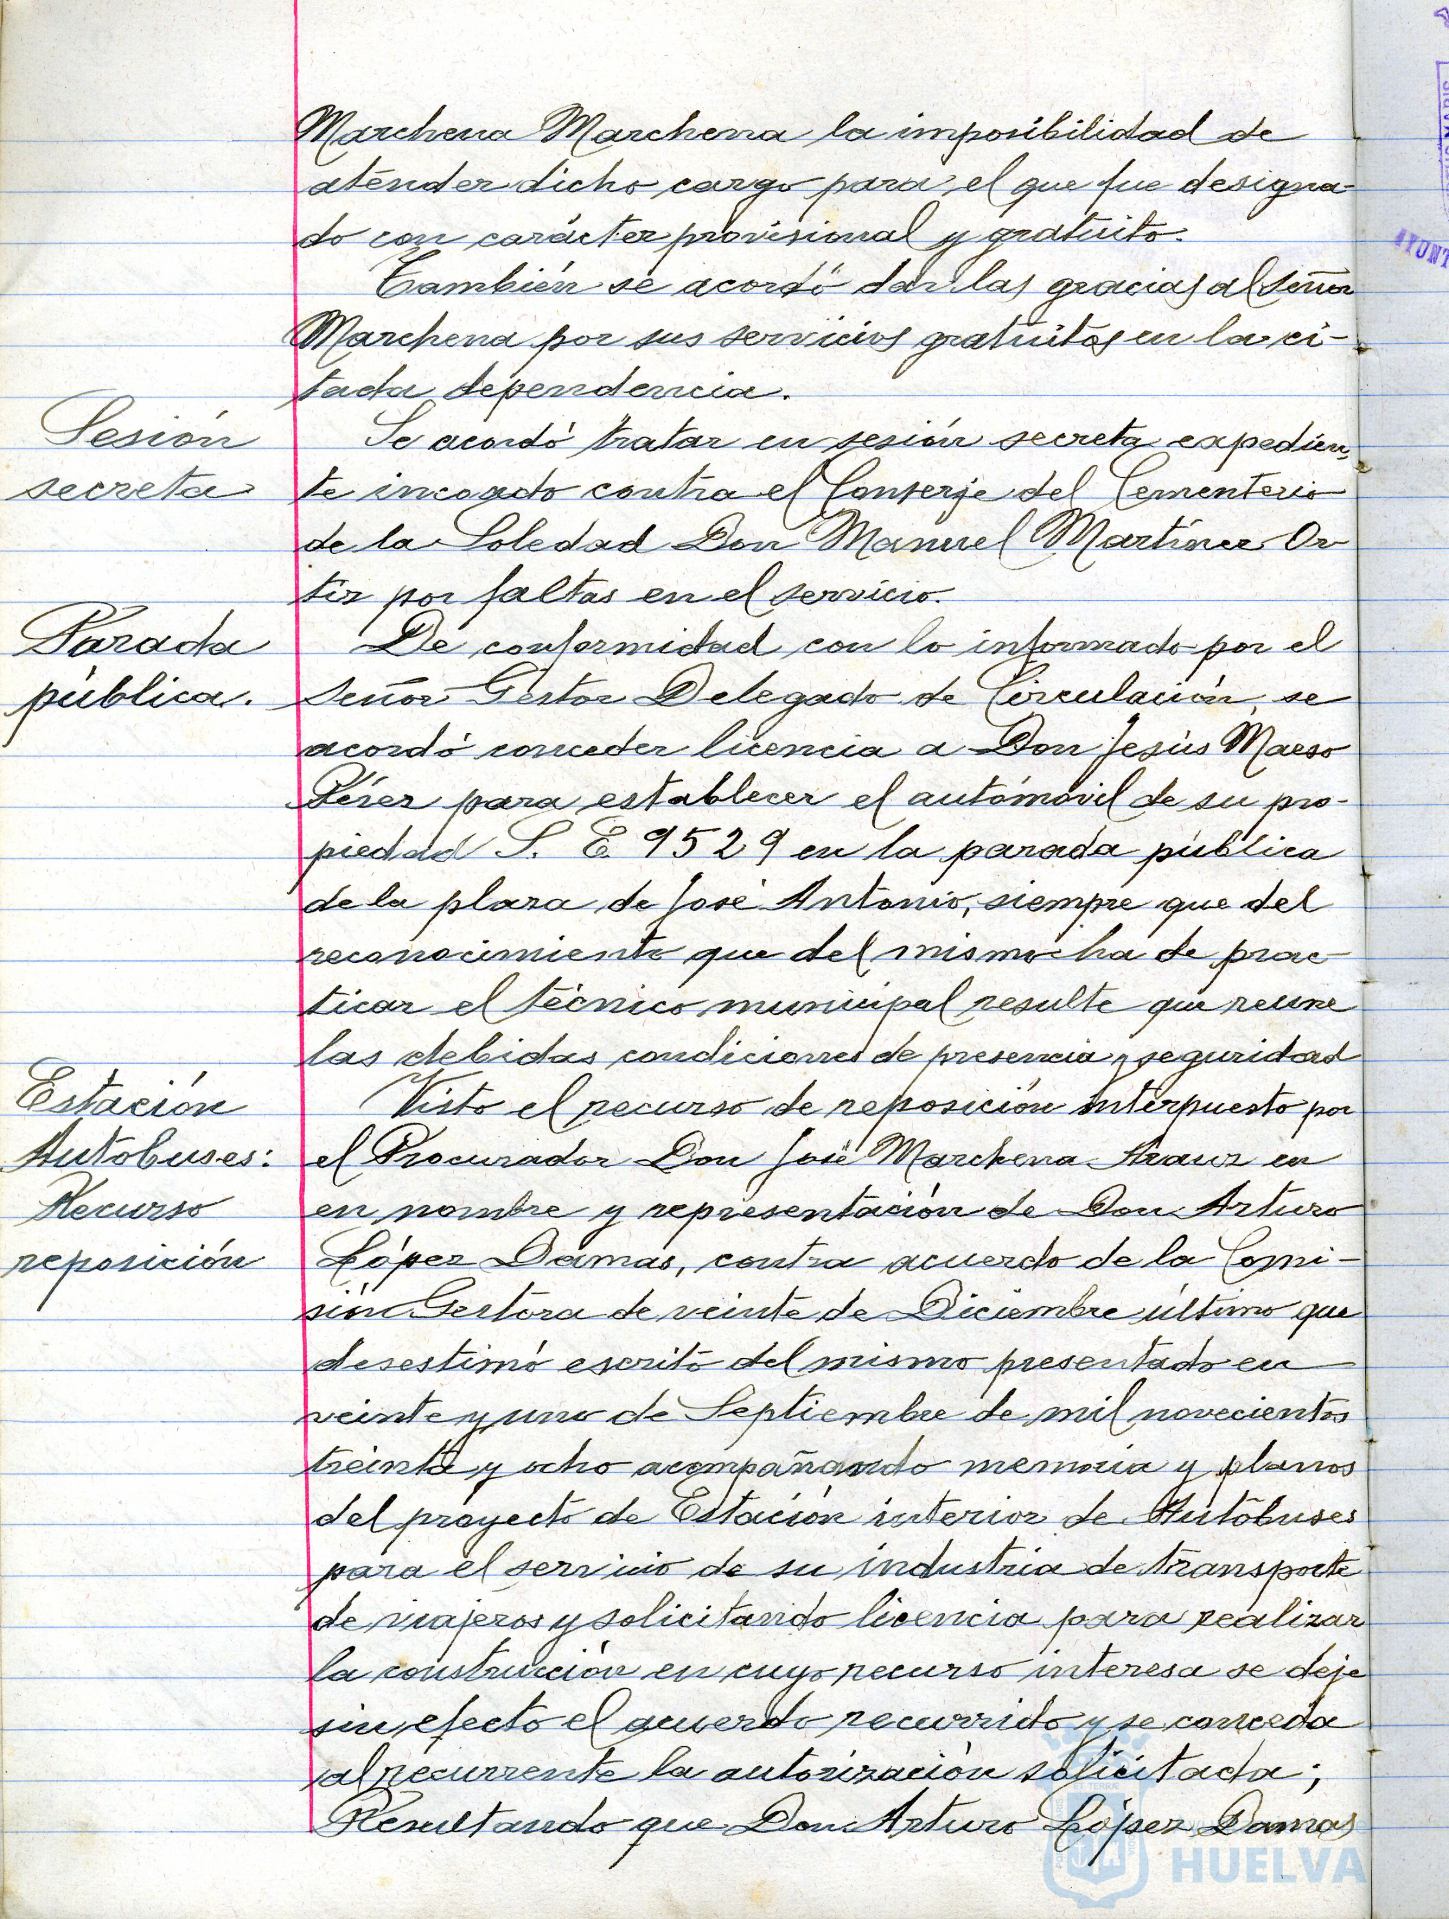 Marchena Marchena la imposibilidad de
atender dicho cargo para el que fue designa-
do con carácter provisional y gratuito.
También se acordó dar las gracias al señor
Marchena por sus servicios gratuitos en la ci-
tada dependencia.
Sesión
secreta
Se acordó tratar en sesión secreta expedien-
te incoado contra el Conserje del Cementerio
de la Soledad Don Manuel Martínez Or-
tiz por faltas en el servicio.
Parada
pública.
De conformidad con lo informado por el
señor Gestor Delegado de Circulación, se
acordó conceder licencia a Don Jesús Maeso
Pérez para establecer el automóvil de su pro-
piedad S. E. 9529 en la parada pública
de la plaza de José Antonio, siempre que del
reconocimiento que del mismo ha de prac-
ticar el técnico municipal resulte que reune
las debidas condiciones de presencia y seguridad
Estación
Autobuses:
Recurso
reposición
Visto el recurso de reposición interpuesto por
el Procurador Don José Marchena Arauz en
en nombre y representación de Don Arturo
López Damas, contra acuerdo de la Comi-
sión Gestora de veinte de Diciembre último que
desestimó escrito del mismo presentado en
veinte y uno de Septiembre de mil novecientos
treinta y ocho acompañando memoria y planos
del proyecto de Estación interior de Autobuses
para el servicio de su industria de transporte
de viajeros y solicitando licencia para realizar
la construcción en cuyo recurso interesa se deje
sin efecto el acuerdo recurrido y se conceda
al recurrente la autorización solicitada;
Resultando que Don Arturo López Damas
HUELVA
AYUNT